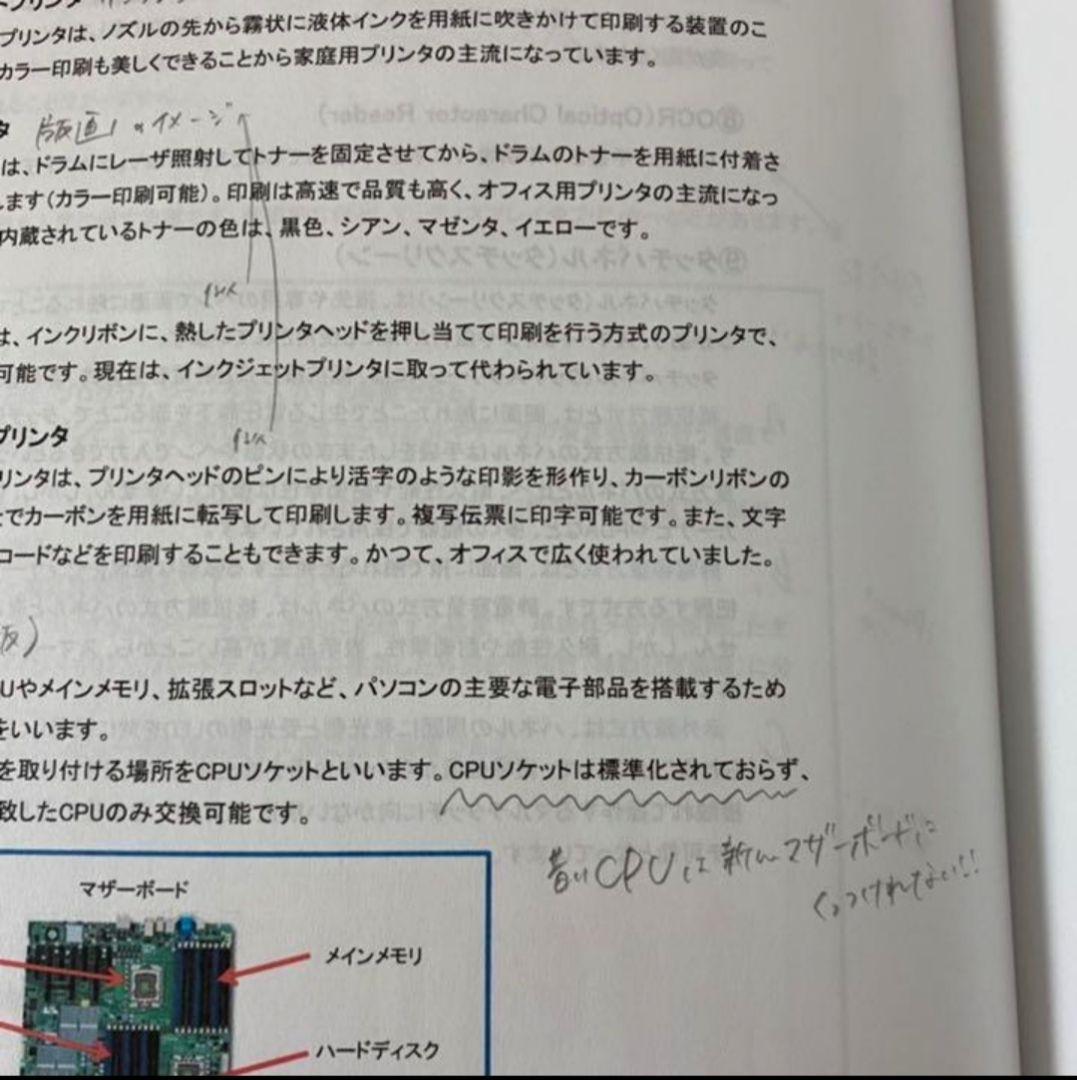 プリンタは、ノズルの先から霧状に液体インクを用紙に吹きかけて印刷する装置のこ
カラー印刷も美しくできることから家庭用プリンタの主流になっています。
タ 「版画」のイメージ
は、ドラムにレーザ照射してトナーを固定させてから、ドラムのトナーを用紙に付着さ
します(カラー印刷可能)。印刷は高速で品質も高く、オフィス用プリンタの主流になっ
内蔵されているトナーの色は、黒色、シアン、マゼンタ、イエローです。
は、インクリボンに、熱したプリンタヘッドを押し当てて印刷を行う方式のプリンタで、
可能です。現在は、インクジェットプリンタに取って代わられています。
プリンタ
リンタは、プリンタヘッドのピンにより活字のような印影を形作り、カーボンリボンの
とでカーボンを用紙に転写して印刷します。複写伝票に印字可能です。また、文字
コードなどを印刷することもできます。かつて、オフィスで広く使われていました。
板)
Uやメインメモリ、拡張スロットなど、パソコンの主要な電子部品を搭載するため
をいいます。
を取り付ける場所をCPUソケットといいます。CPUソケットは標準化されておらず、
致したCPUのみ交換可能です。
昔いCPUは新しいマザーボードに
くっつけれてない!!
マザーボード
メインメモリ
ハードディスク